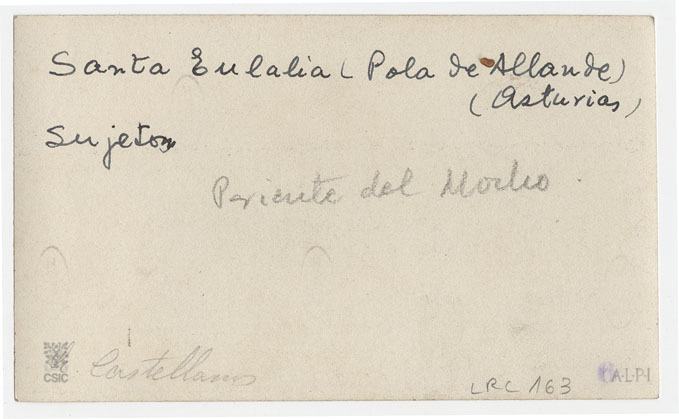 Santa Eulalia (Pola de Allande)
(Asturias)
Sujetos
Pariente del Mocho.
CSIC Castellanos
LRC 163
A·L·P·I